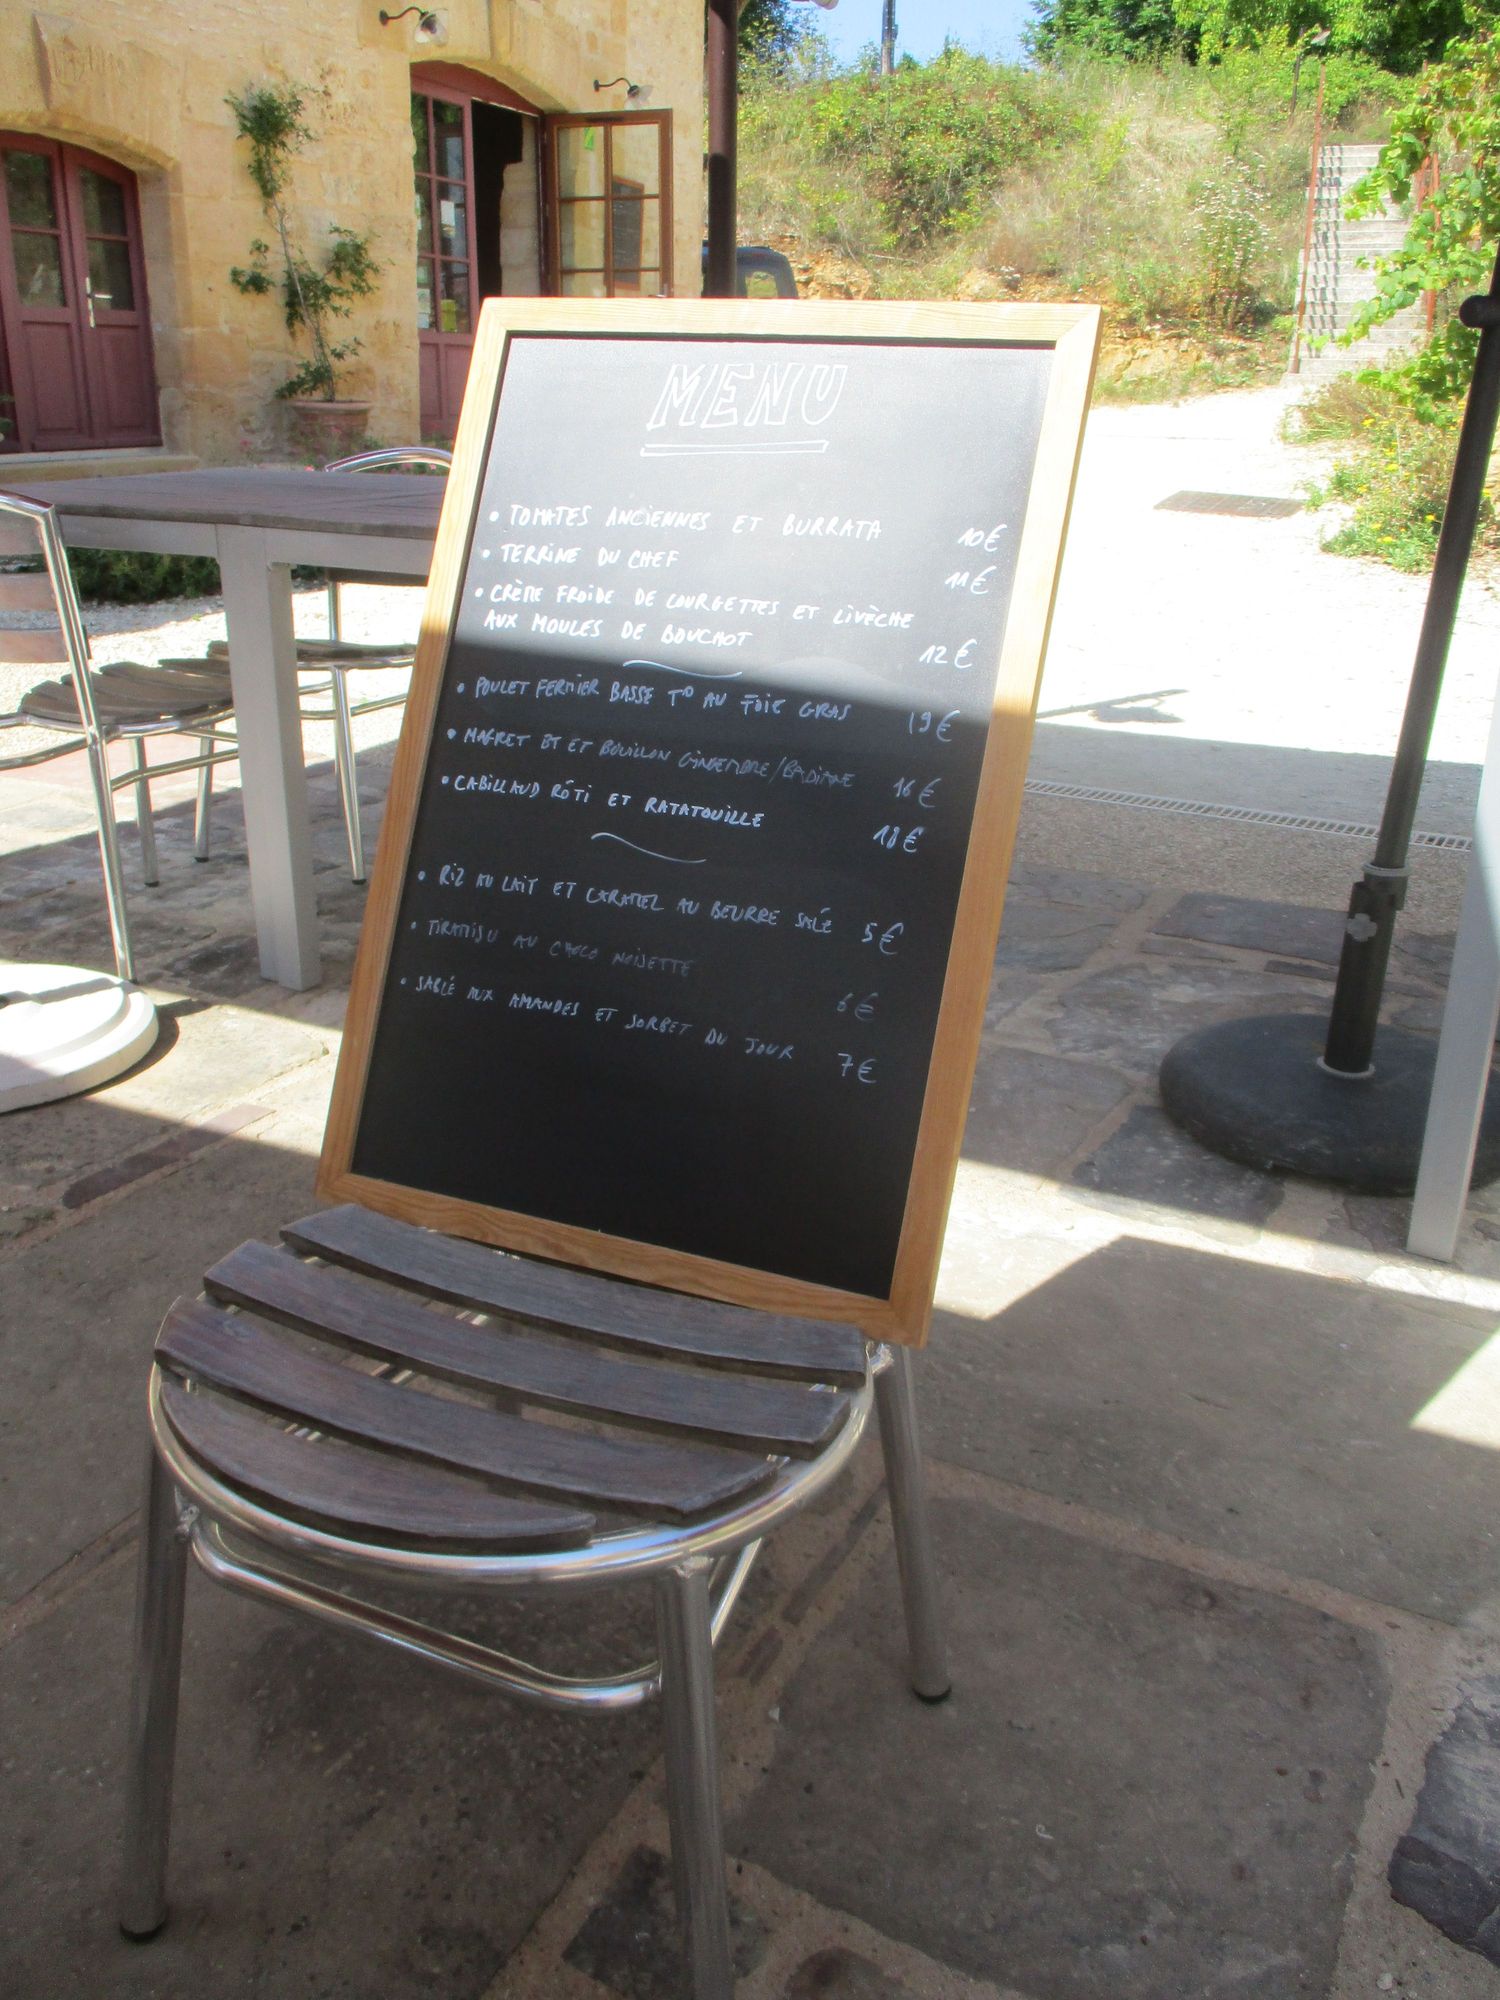 MENU
• TOMATES ANCIENNES ET BURRATA 10€
• TERRINE DU CHEF 11€
• CRÈME FROIDE DE COURGETTES ET LIVÈCHE
AUX MOULES DE BOUCHOT 12€
• POULET FERMIER BASSE T° AU FOIE GRAS 19€
• MAGRET BT ET BOUILLON GINGEMBRE/BADIANE 16€
• CABILLAUD RÔTI ET RATATOUILLE 18€
• RIZ AU LAIT ET CARAMEL AU BEURRE SALÉ 5€
• TIRAMISU AU CHOCO NOISETTE 6€
• SABLÉ AUX AMANDES ET SORBET DU JOUR 7€